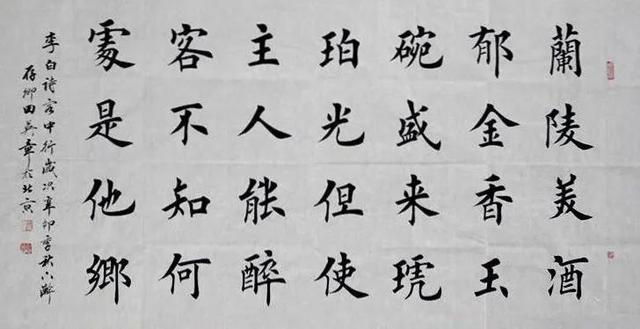 蘭陵美酒
郁金香玉
碗盛来琥
珀光但使
主人能醉
客不知何
處是他鄉
李白诗客中行歲次辛卯季秋小澥
存卿田英章於北京